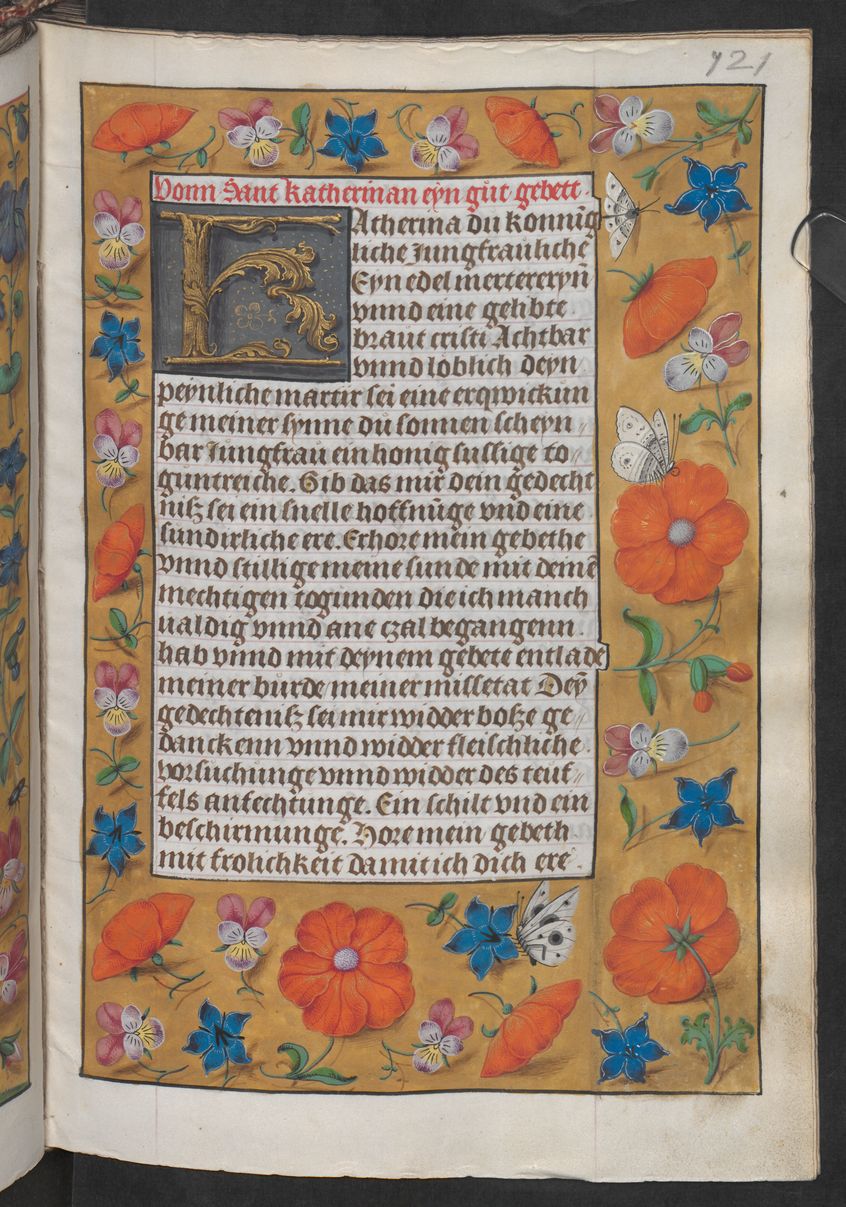 721
Vonn Sant Katherinan eyn gůt gebett.
KAtherina du konnūg
liche Jungfrauliche
Eyn edel mertereryn̄
vnnd eine gelibte
braut cristi Achtbar
vnnd loblich deyn
peynliche martir sei eine erqwickun
ge meiner synne dů sonnen scheyn //
bar Jungfrau ein honig sussige to //
guntreiche. Gib das mir dein gedecht
nisz sei ein snelle hoffnūge vnd eine
sundirliche ere. Erhore mein gebethe
vnnd stillige meine sunde mit deinē
mechtigen togunden die ich manch
ualdig vnnd ane czal begangenn.
hab vnnd mit deynem gebete entlade
meiner burde meiner missetat Dey̅
gedechtenisz sei mir widder bosze ge
danckenn vnnd widder fleischliche.
vorsuchunge vnnd widder des teuf //
fels anfechtunge. Ein schilt vnd ein
beschirmunge. Hore mein gebeth
mit frolichkeit damit ich dich ere.